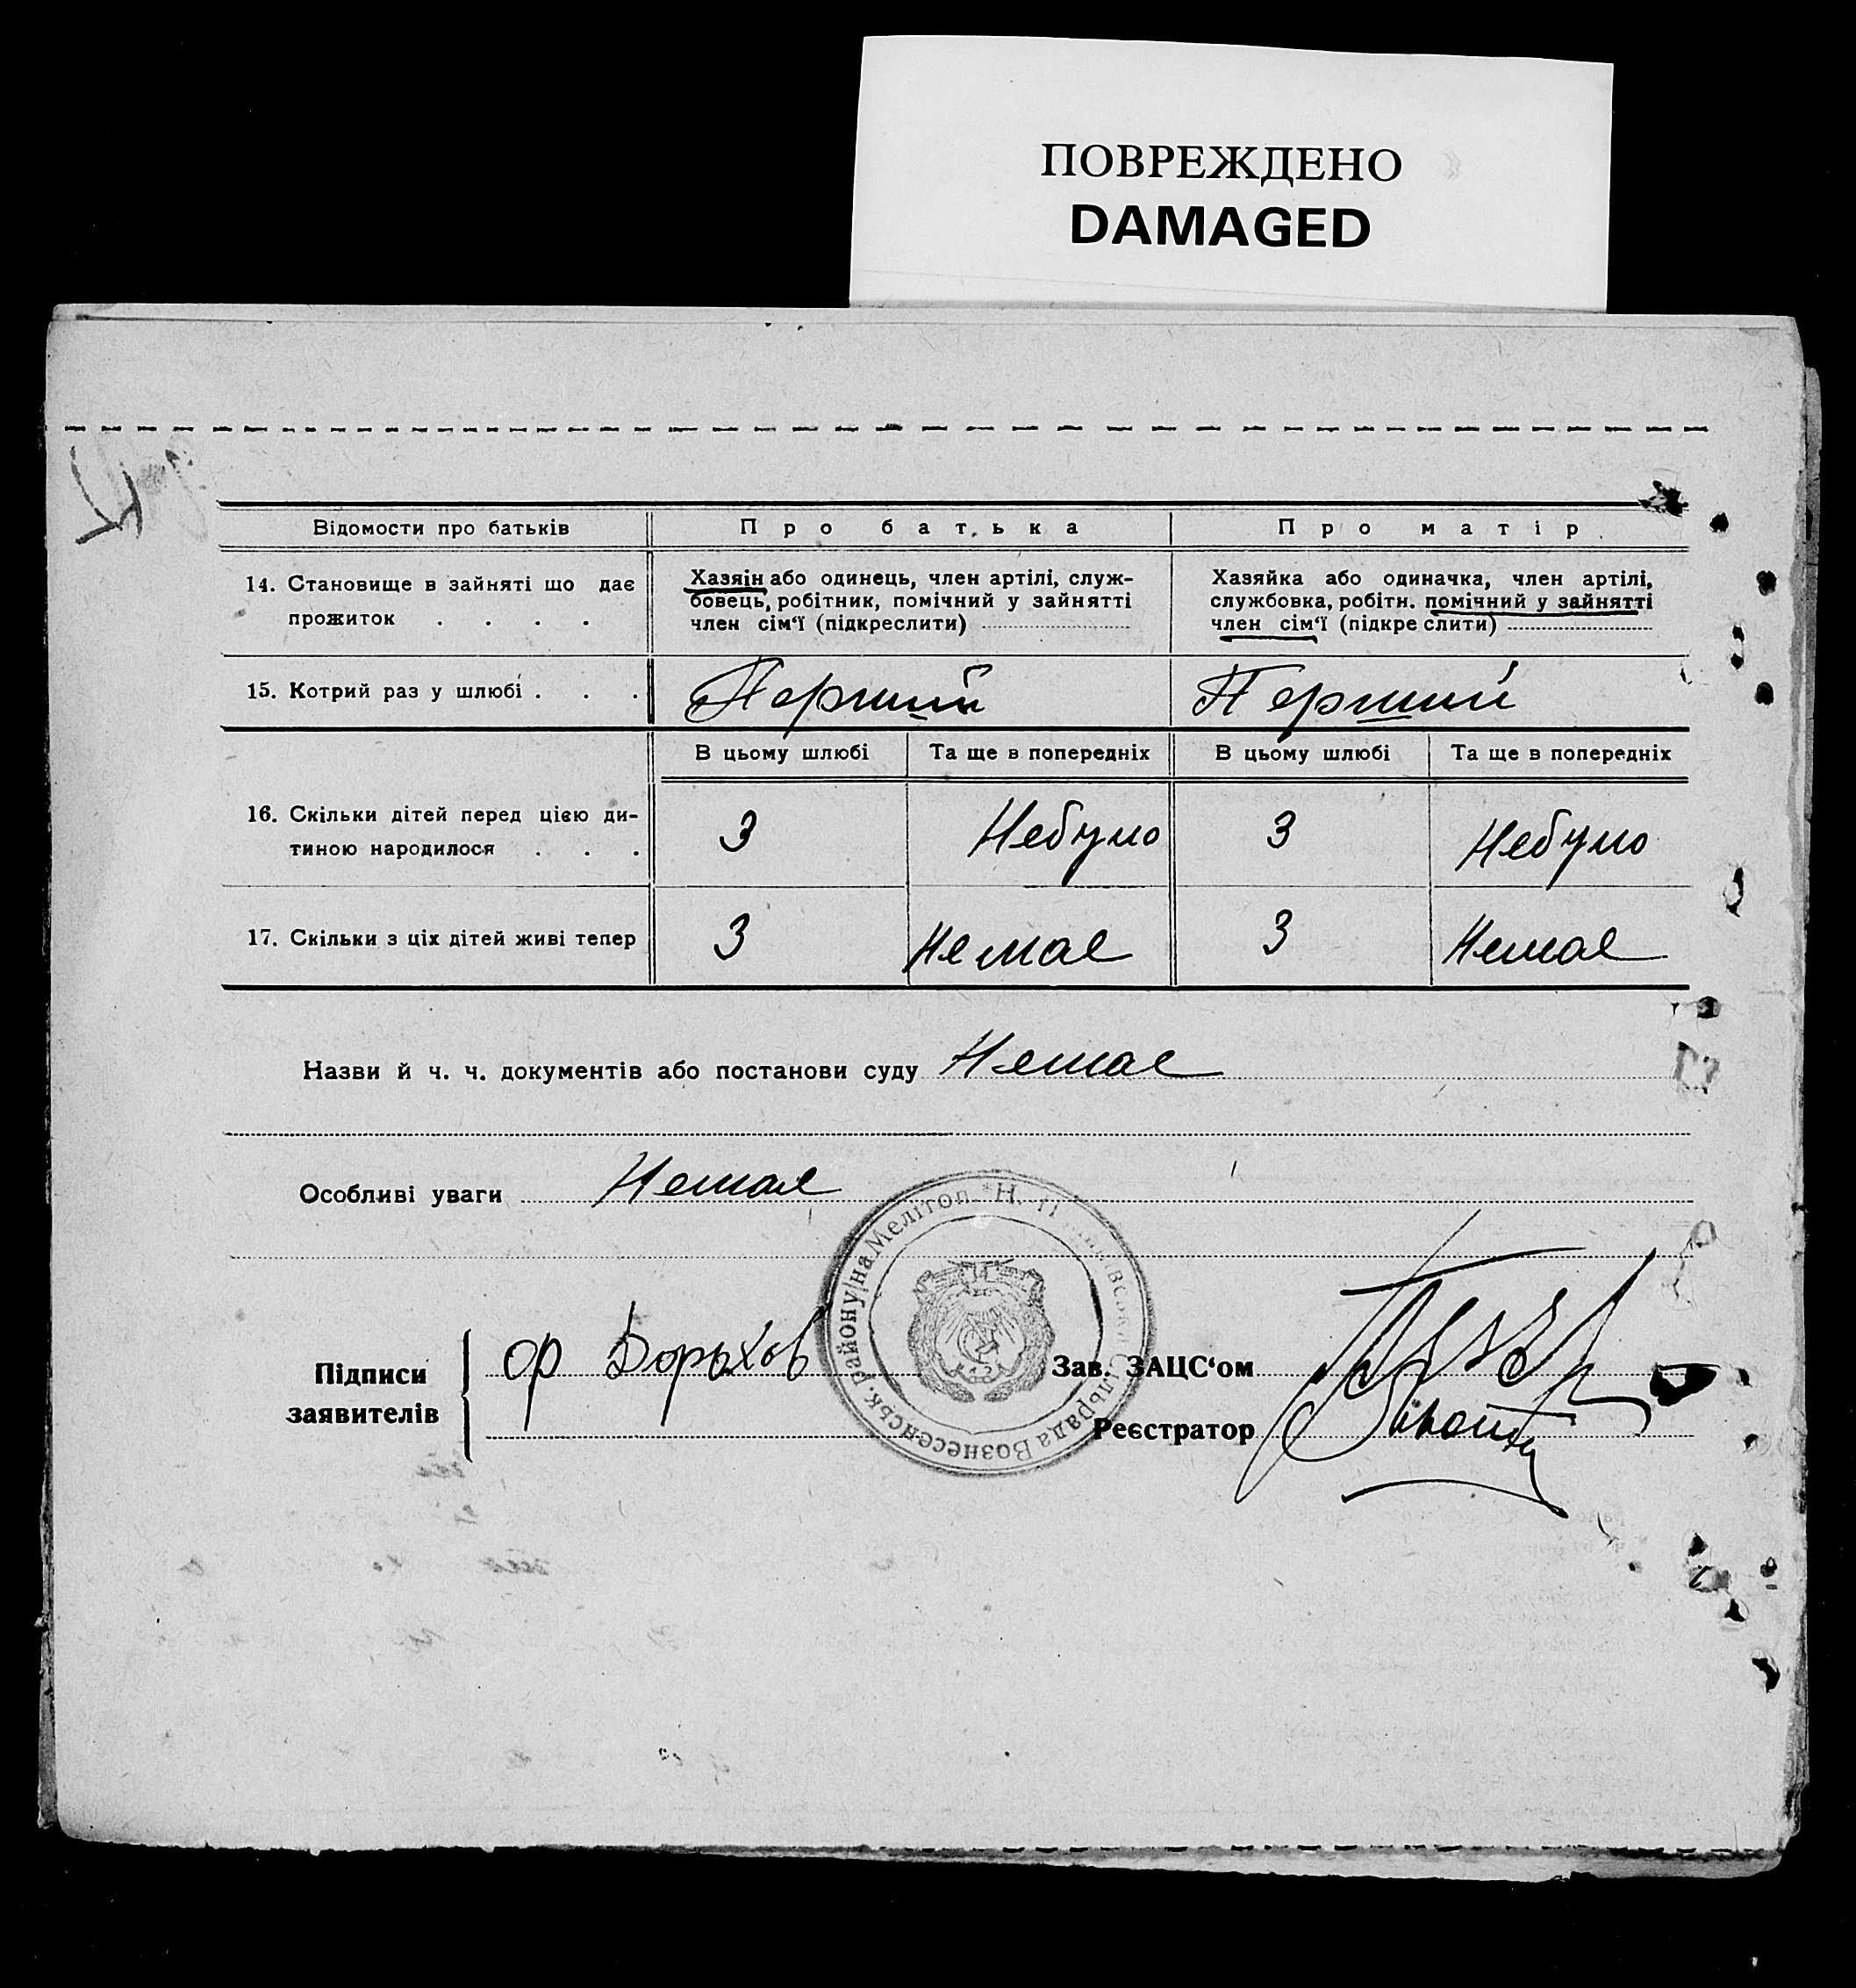 ПОВРЕЖДЕНО
DAMAGED
Відомости про батьків
Про батька
Про матір
14. Становище в зайняті що дає
прожиток . . . .
Хазяін або одинець, член артілі, служ-
бовець, робітник, помічний у зайнятті
член сім‘ї (підкреслити)
Хазяйка або одиначка, член артілі,
службовка, робітн. помічний у зайнятті
член сім‘ї (підкреслити)
15. Котрий раз у шлюбі . . .
Перший
Перший
В цьому шлюбі
Та ще в попередніх
В цьому шлюбі
Та ще в попередніх
16. Скільки дітей перед цією ди-
тиною народилося . . .
3
Небуло
3
Небуло
17. Скільки з ціх дітей живі тепер
3
Немае
3
Немае
Назви й ч. ч. документів або постанови суду Немае
Особливі уваги Немае
Мелітоп. *Н.
району на
Вознесенськ.
сільрада
Підписи
заявителів
Зав. ЗАЦС‘ом
Реєстратор